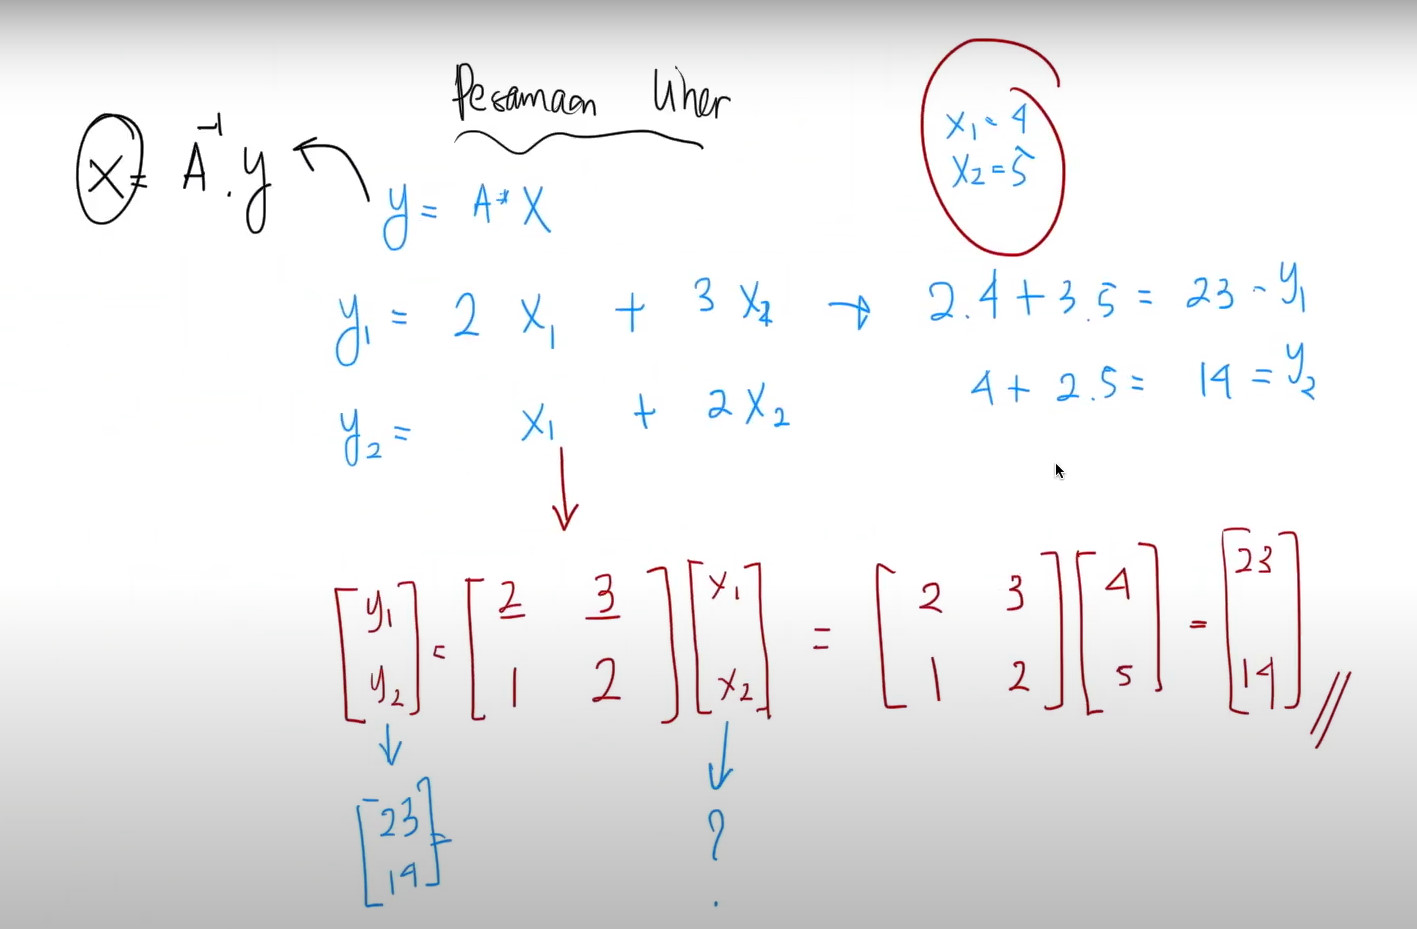 Pesamaan liner
x = A⁻¹ . y
y = A * X
x₁ = 4
x₂ = 5
y₁ = 2 x₁ + 3 x₂ → 2.4 + 3.5 = 23 = y₁
y₂ = x₁ + 2 x₂
4 + 2.5 = 14 = y₂
[y₁ y₂] = [2 3 1 2] [x₁ x₂] = [2 3 1 2] [4 5] = [23 14] //
[23 14] =
?